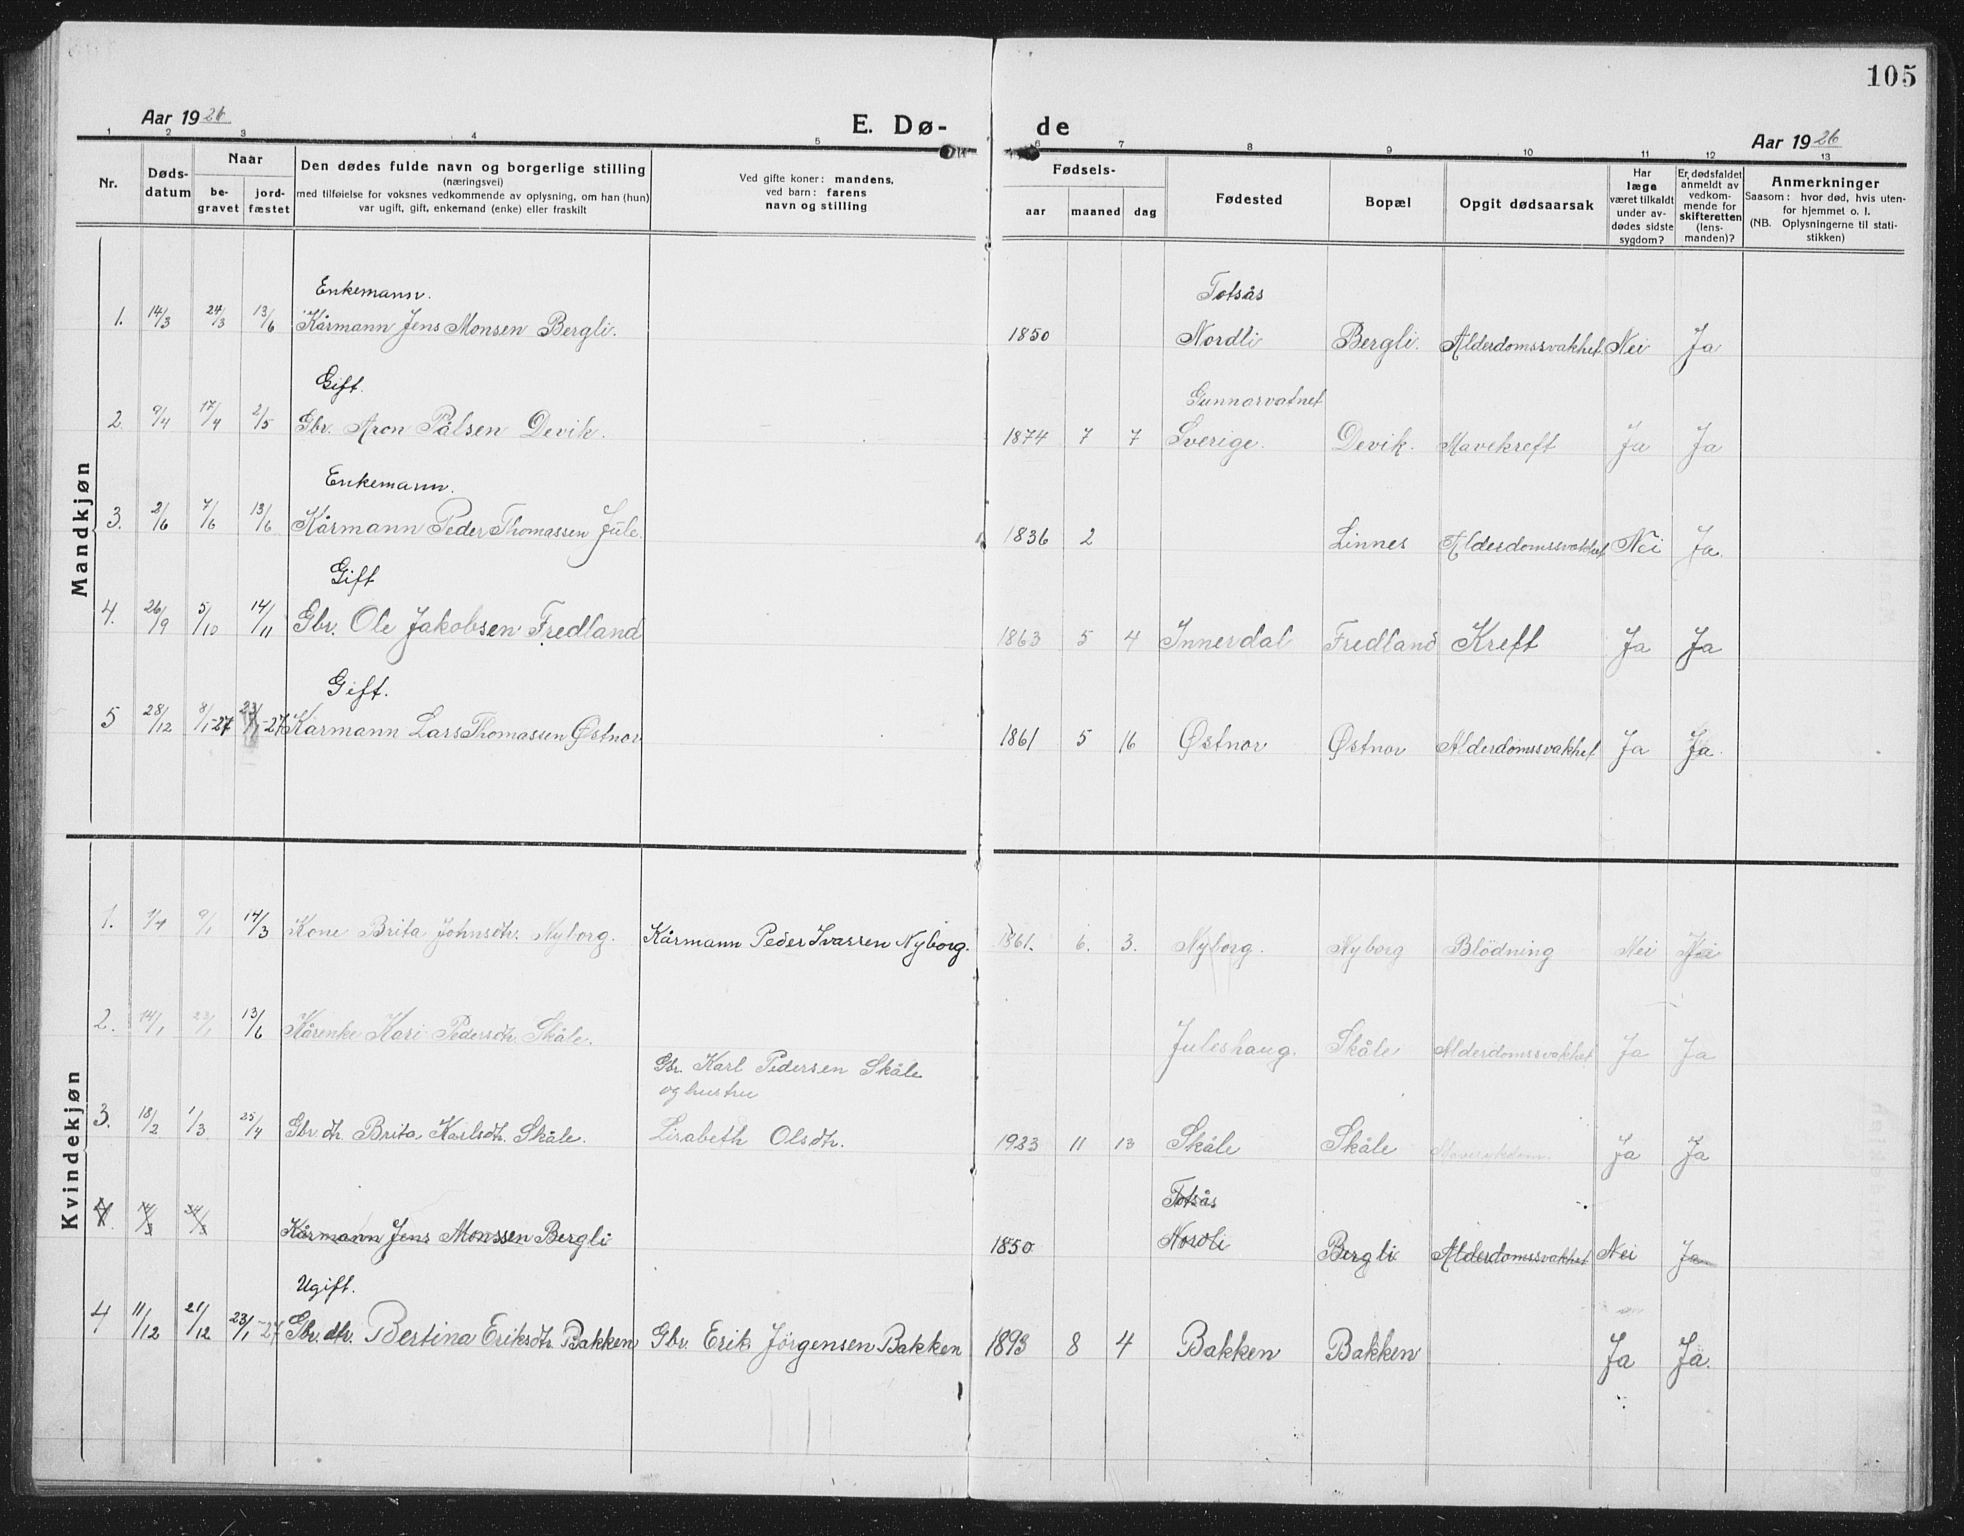 105
Aar 1926
E. Dø-
de
Aar 1926
1 2 3 4 5 6 7 8 9 10 11 12 13
Nr.
Døds-
datum
Naar
be-
gravet
jord-
fæstet
Den dødes fulde navn og borgerlige stilling
(næringsvei)
med tilføielse for voksnes vedkommende av oplysning, om han (hun)
var ugift, gift, enkemand (enke) eller fraskilt
Ved gifte koner: mandens,
ved barn: farens
navn og stilling
Fødsels-
aar
maaned
dag
Fødested
Bopæl
Opgit dødsaarsak
Har
læge
været tilkaldt
under av-
dødes sidste
sygdom?
Er dødsfaldet
anmeldt av
vedkom-
mende for
skifteretten
(lens-
manden)?
Anmerkninger
Saasom: hvor død, hvis uten-
for hjemmet o. l.
(NB. Oplysningerne til stati-
stikken)
Mandkjøn
Enkemann. Totsås
1. 14/3 24/3 13/6 Kårmann Jens Monsen Bergli. 1850 Nordli Bergli. Alderdomssvakhet Nei Ja
Gift. Gunnarvatnet
2. 9/4 17/4 2/5 Gbr. Aron Pålsen Devik. 1874 7 7 Sverige. Devik. Mavekreft Ja Ja
Enkemann.
3. 2/6 7/6 13/6 Kårmann Peder Thomassen Jule 1836 2 Linnes Alderdomssvakhet Nei Ja.
Gift
4. 26/9 5/10 14/11 Gbr. Ole Jakobsen Fredland 1863 5 4 Innerdal Fredland Kreft Ja Ja
Gift.
5 28/12 8/1-27 23/1-27 Kårmann Lars Thomassen Østnor 1861 5 16 Østnor Østnor Alderdomssvakhet Ja Ja.
Kvindekjøn
1. 1/1 9/1 14/3 Kone Brita Johnsdtr. Nyborg. Kårmann Peder Ivarsen Nyborg. 1861. 6. 3. Nyborg. Nyborg Blödning Nei
2. 14/1 23/1 13/6 Kårenke Kari Pedersdtr. Skåle. Juleshaug. Skåle Alderdomssvakhet Ja Ja
Gbr. Karl Pedersen Skåle
og hustru
3. 18/2 1/3 25/4 Gbr. dtr. Brita Karlsdtr. Skåle. Lisabeth Olsdtr. 1923 11 13 Skåle Skåle Ja Ja
Totsås
4. 14/3 24/3 Kårmann Jens Monssen Bergli 1850 Nordli Bergli Alderdomssvakhet Nei Ja
Ugift.
4 11/12 21/12 23/1-27 Gbr. dtr. Bertina Eriksdtr. Bakken Gbr. Erik Jörgensen Bakken 1893 8 4 Bakken Bakken Ja Ja.